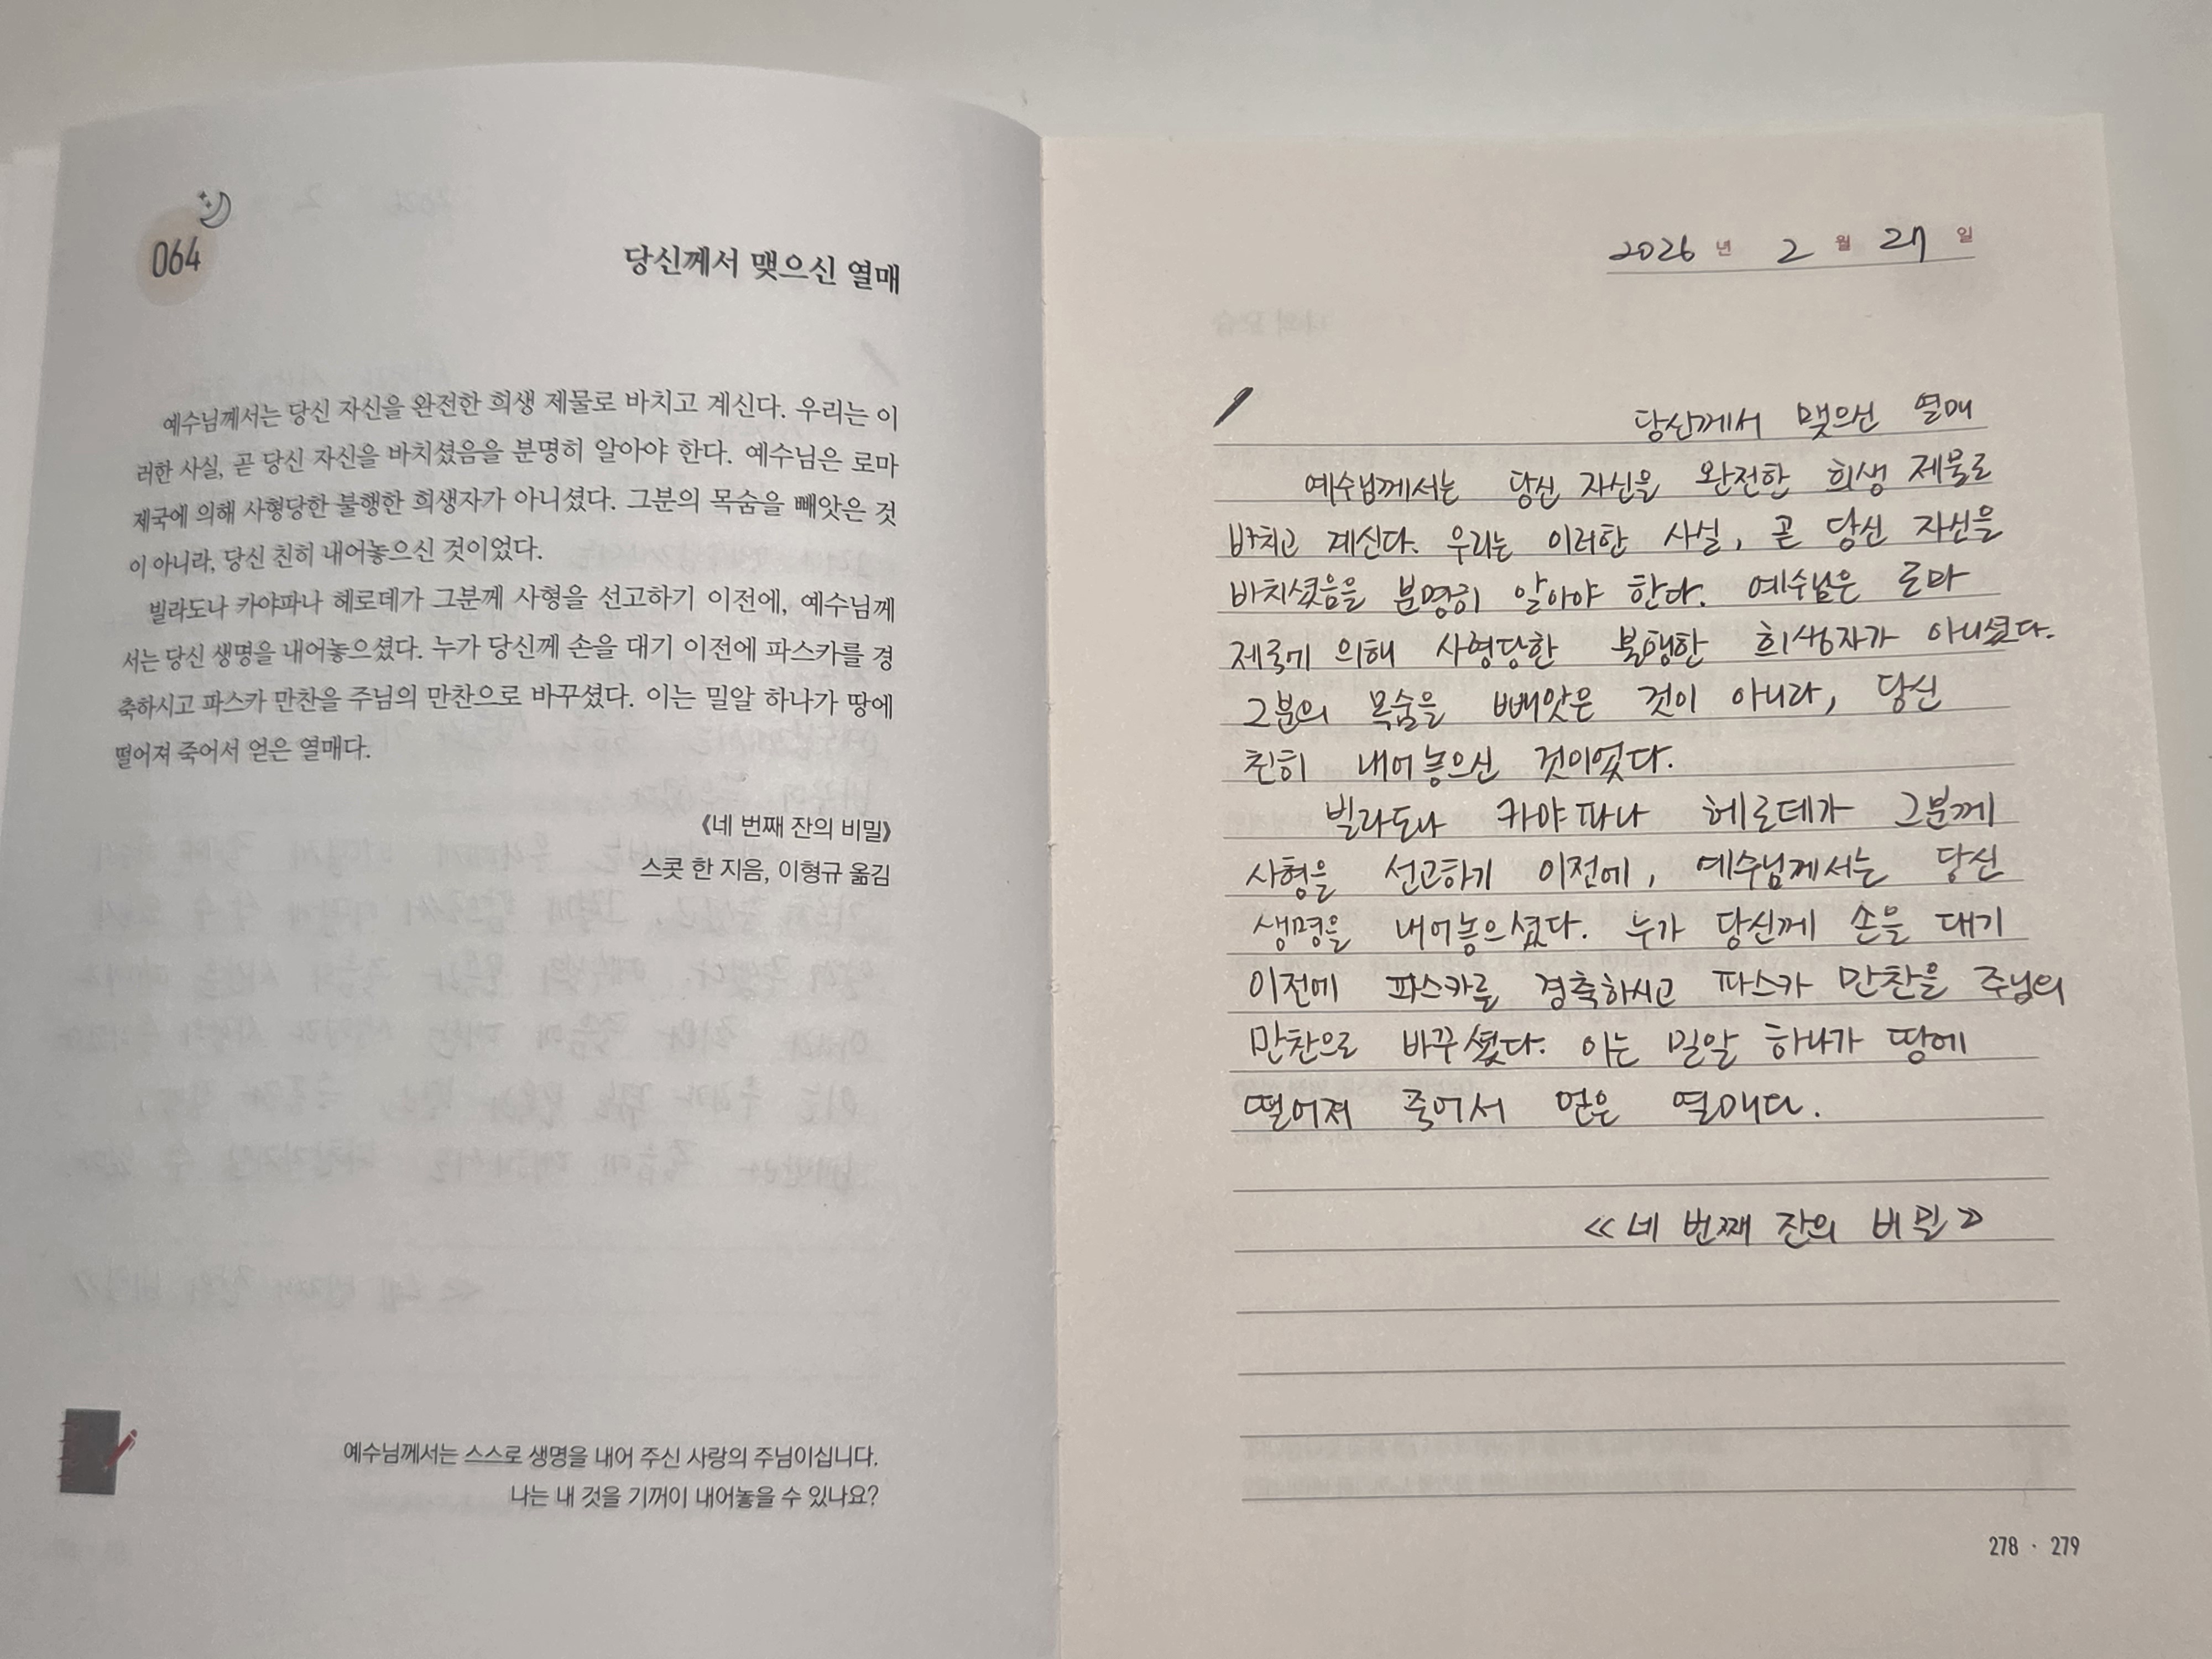 064
당신께서 맺으신 열매
예수님께서는 당신 자신을 완전한 희생 제물로 바치고 계신다. 우리는 이
러한 사실, 곧 당신 자신을 바치셨음을 분명히 알아야 한다. 예수님은 로마
제국에 의해 사형당한 불행한 희생자가 아니셨다. 그분의 목숨을 빼앗은 것
이 아니라, 당신 친히 내어놓으신 것이었다.
빌라도나 카야파나 헤로데가 그분께 사형을 선고하기 이전에, 예수님께
서는 당신 생명을 내어놓으셨다. 누가 당신께 손을 대기 이전에 파스카를 경
축하시고 파스카 만찬을 주님의 만찬으로 바꾸셨다. 이는 밀알 하나가 땅에
떨어져 죽어서 얻은 열매다.
《네 번째 잔의 비밀》
스콧 한 지음, 이형규 옮김
예수님께서는 스스로 생명을 내어 주신 사랑의 주님이십니다.
나는 내 것을 기꺼이 내어놓을 수 있나요?
2026 년 2 월 27 일
당신께서 맺으신 열매
예수님께서는 당신 자신을 완전한 희생 제물로
바치고 계신다. 우리는 이러한 사실, 곧 당신 자신을
바치셨음을 분명히 알아야 한다. 예수님은 로마
제국에 의해 사형당한 불행한 희생자가 아니셨다.
그분의 목숨을 빼앗은 것이 아니라, 당신
친히 내어놓으신 것이었다.
빌라도나 카야파나 헤로데가 그분께
사형을 선고하기 이전에, 예수님께서는 당신
생명을 내어놓으셨다. 누가 당신께 손을 대기
이전에 파스카를 경축하시고 파스카 만찬을 주님의
만찬으로 바꾸셨다. 이는 밀알 하나가 땅에
떨어져 죽어서 얻은 열매다.
<<네 번째 잔의 비밀>>
278 · 279